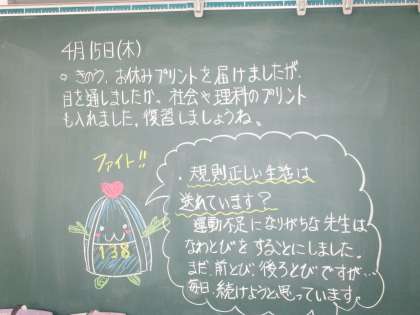 4月15日(木)
○きのう、お休みプリントを届けましたが、
目を通しましたか、社会や理科のプリント
も入れました。復習しましょうね。
ファイト!!
・規則正しい生活は
送れています?
運動不足になりがちな先生は
なわとびをすることにしました。
まだ、前とび、後ろとびですが…
毎日、続けようと思っています。
138